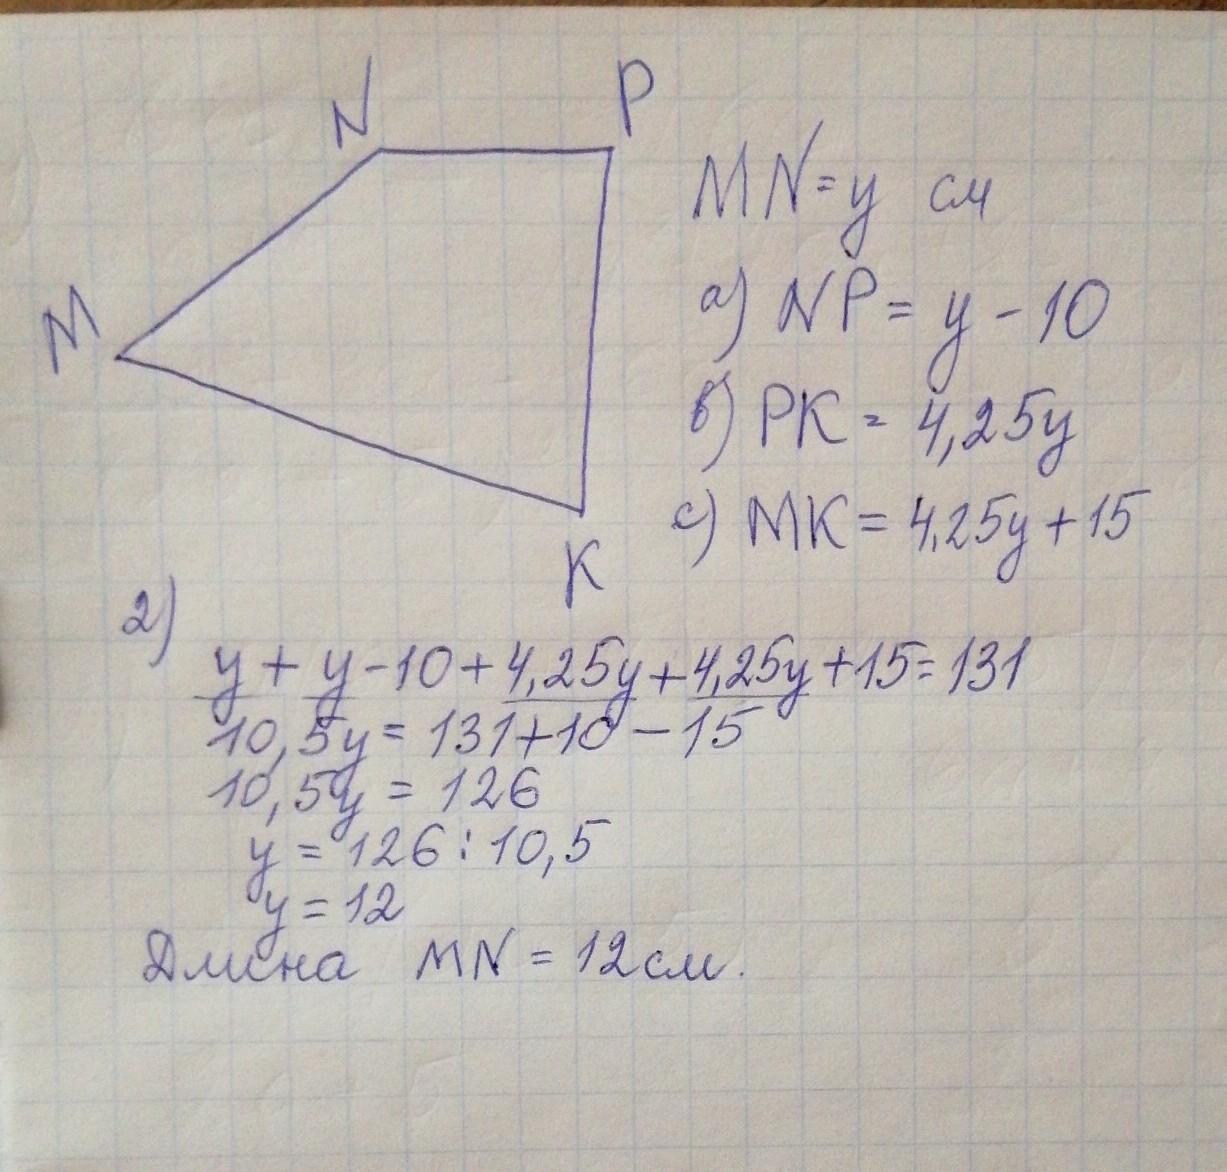 N
P
M
K
MN=y см
a) NP= y - 10
в) PK = 4,25y
c) MK= 4,25y+15
2)
y+ y-10+4,25y+4,25y+15=131
10,5y= 131+10-15
10,5y = 126
y = 126:10,5
y=12
Длина MN = 12см.